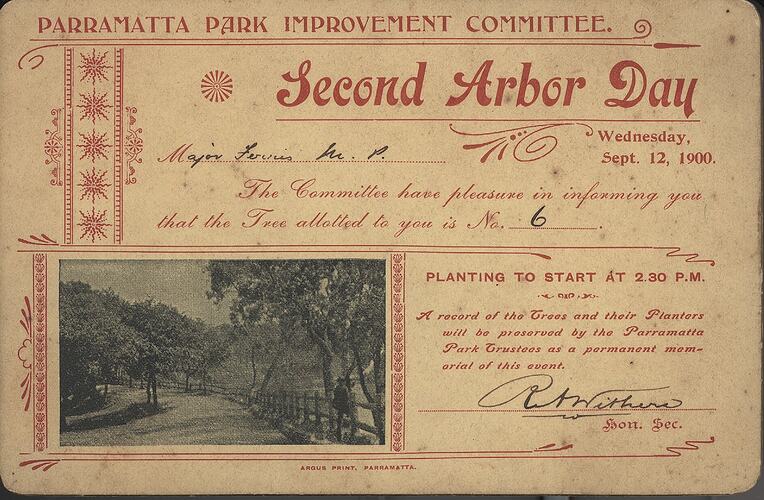 PARRAMATTA PARK IMPROVEMENT COMMITTEE.
Second Arbor Day
Wednesday,
Sept. 12, 1900.
Major Ferris M. P.
The Committee have pleasure in informing you
that the Tree allotted to you is No. 6.
PLANTING TO START AT 2.30 P.M.
A record of the Trees and their Planters
will be preserved by the Parramatta
Park Trustees as a permanent mem-
orial of this event.
R A Withers
Hon. Sec.
ARGUS PRINT, PARRAMATTA.